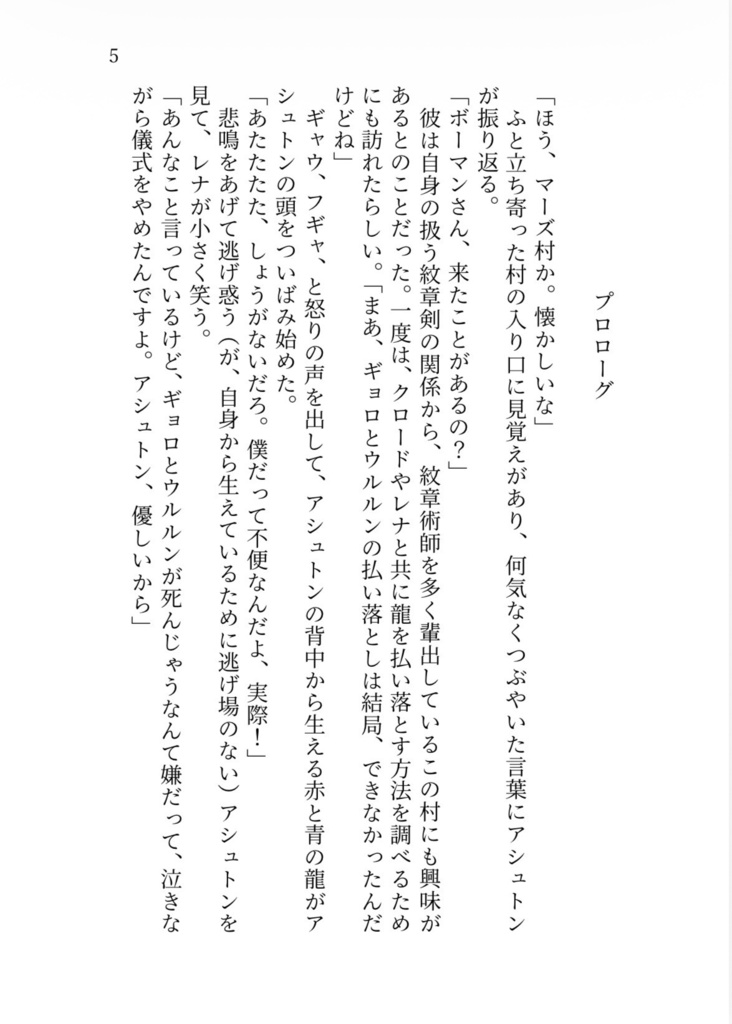 5
プロローグ
「ほう、マーズ村か。懐かしいな」
　ふと立ち寄った村の入り口に見覚えがあり、何気なくつぶやいた言葉にアシュトン
が振り返る。
「ボーマンさん、来たことがあるの？」
　彼は自身の扱う紋章剣の関係から、紋章術師を多く輩出しているこの村にも興味が
あるとのことだった。一度は、クロードやレナと共に龍を払い落とす方法を調べるため
にも訪れたらしい。「まあ、ギョロとウルルンの払い落としは結局、できなかったんだ
けどね」
　ギャウ、フギャ、と怒りの声を出して、アシュトンの背中から生える赤と青の龍がア
シュトンの頭をついばみ始めた。
「あたたたた、しょうがないだろ。僕だって不便なんだよ、実際！」
　悲鳴をあげて逃げ惑う（が、自身から生えているために逃げ場のない）アシュトンを
見て、レナが小さく笑う。
「あんなこと言っているけど、ギョロとウルルンが死んじゃうなんて嫌だって、泣きな
がら儀式をやめたんですよ。アシュトン、優しいから」